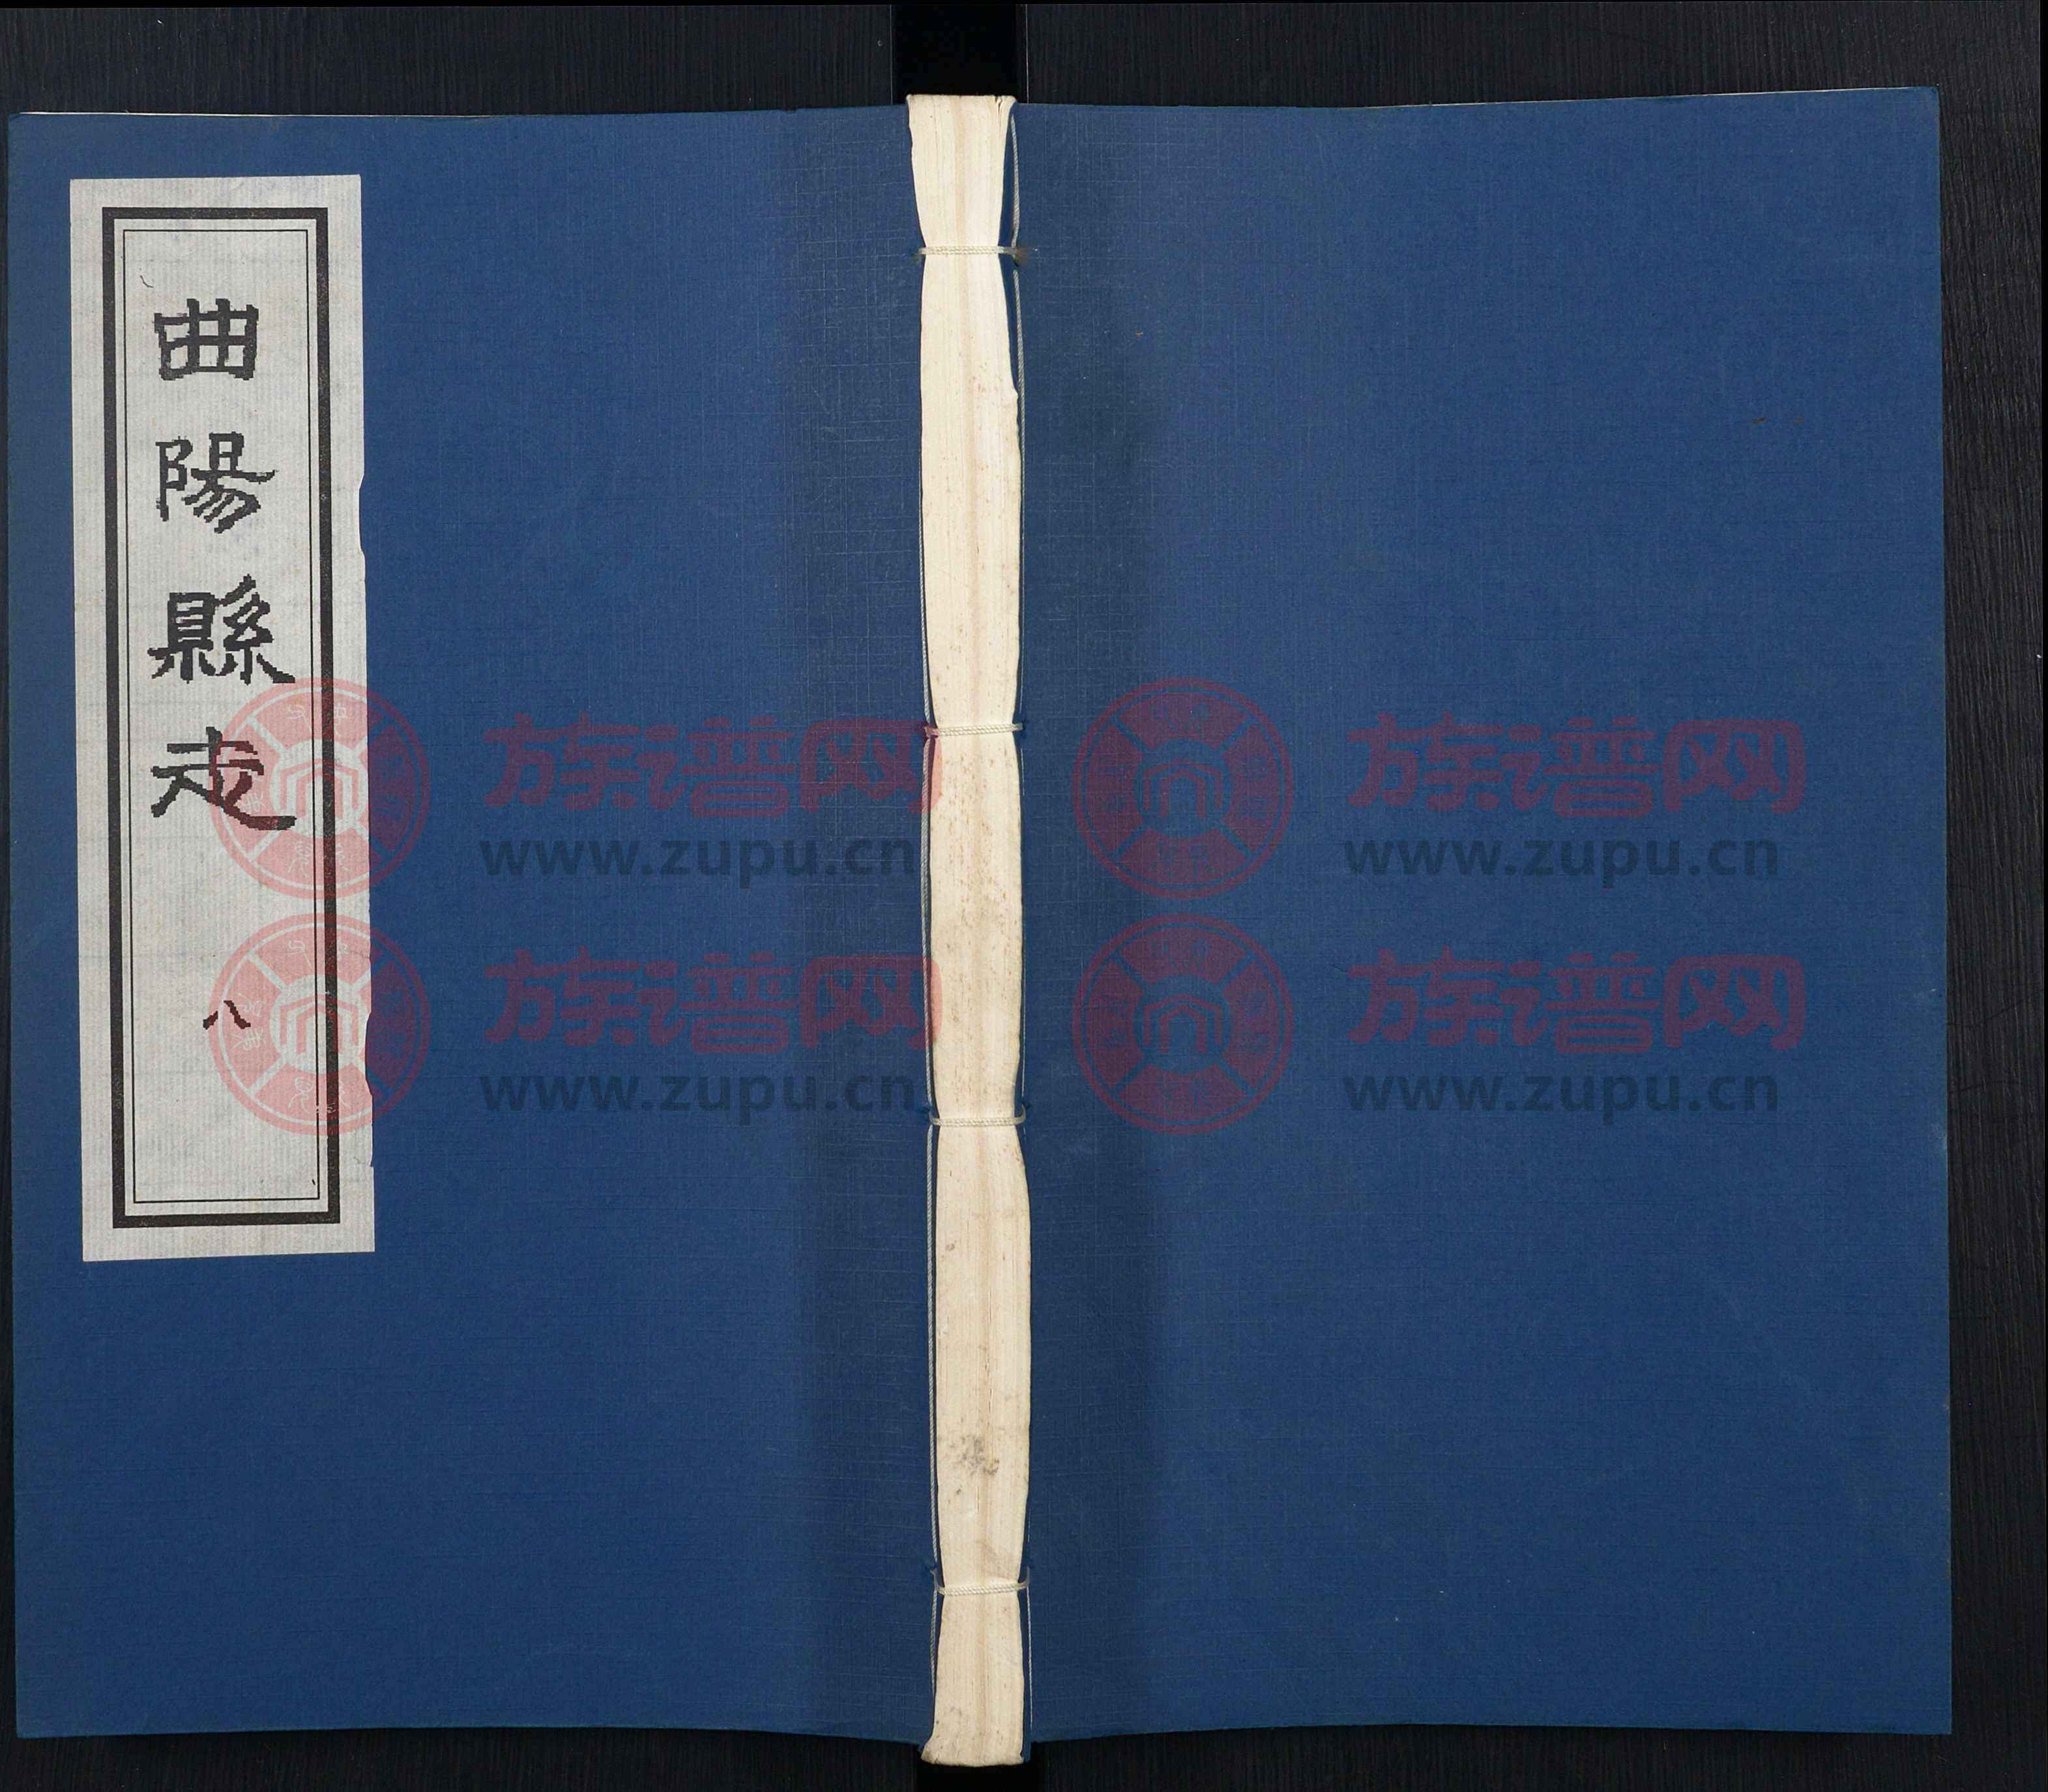 曲陽縣志
八
族谱网
www.zupu.cn
族谱网
www.zupu.cn
族谱网
www.zupu.cn
族谱网
www.zupu.cn